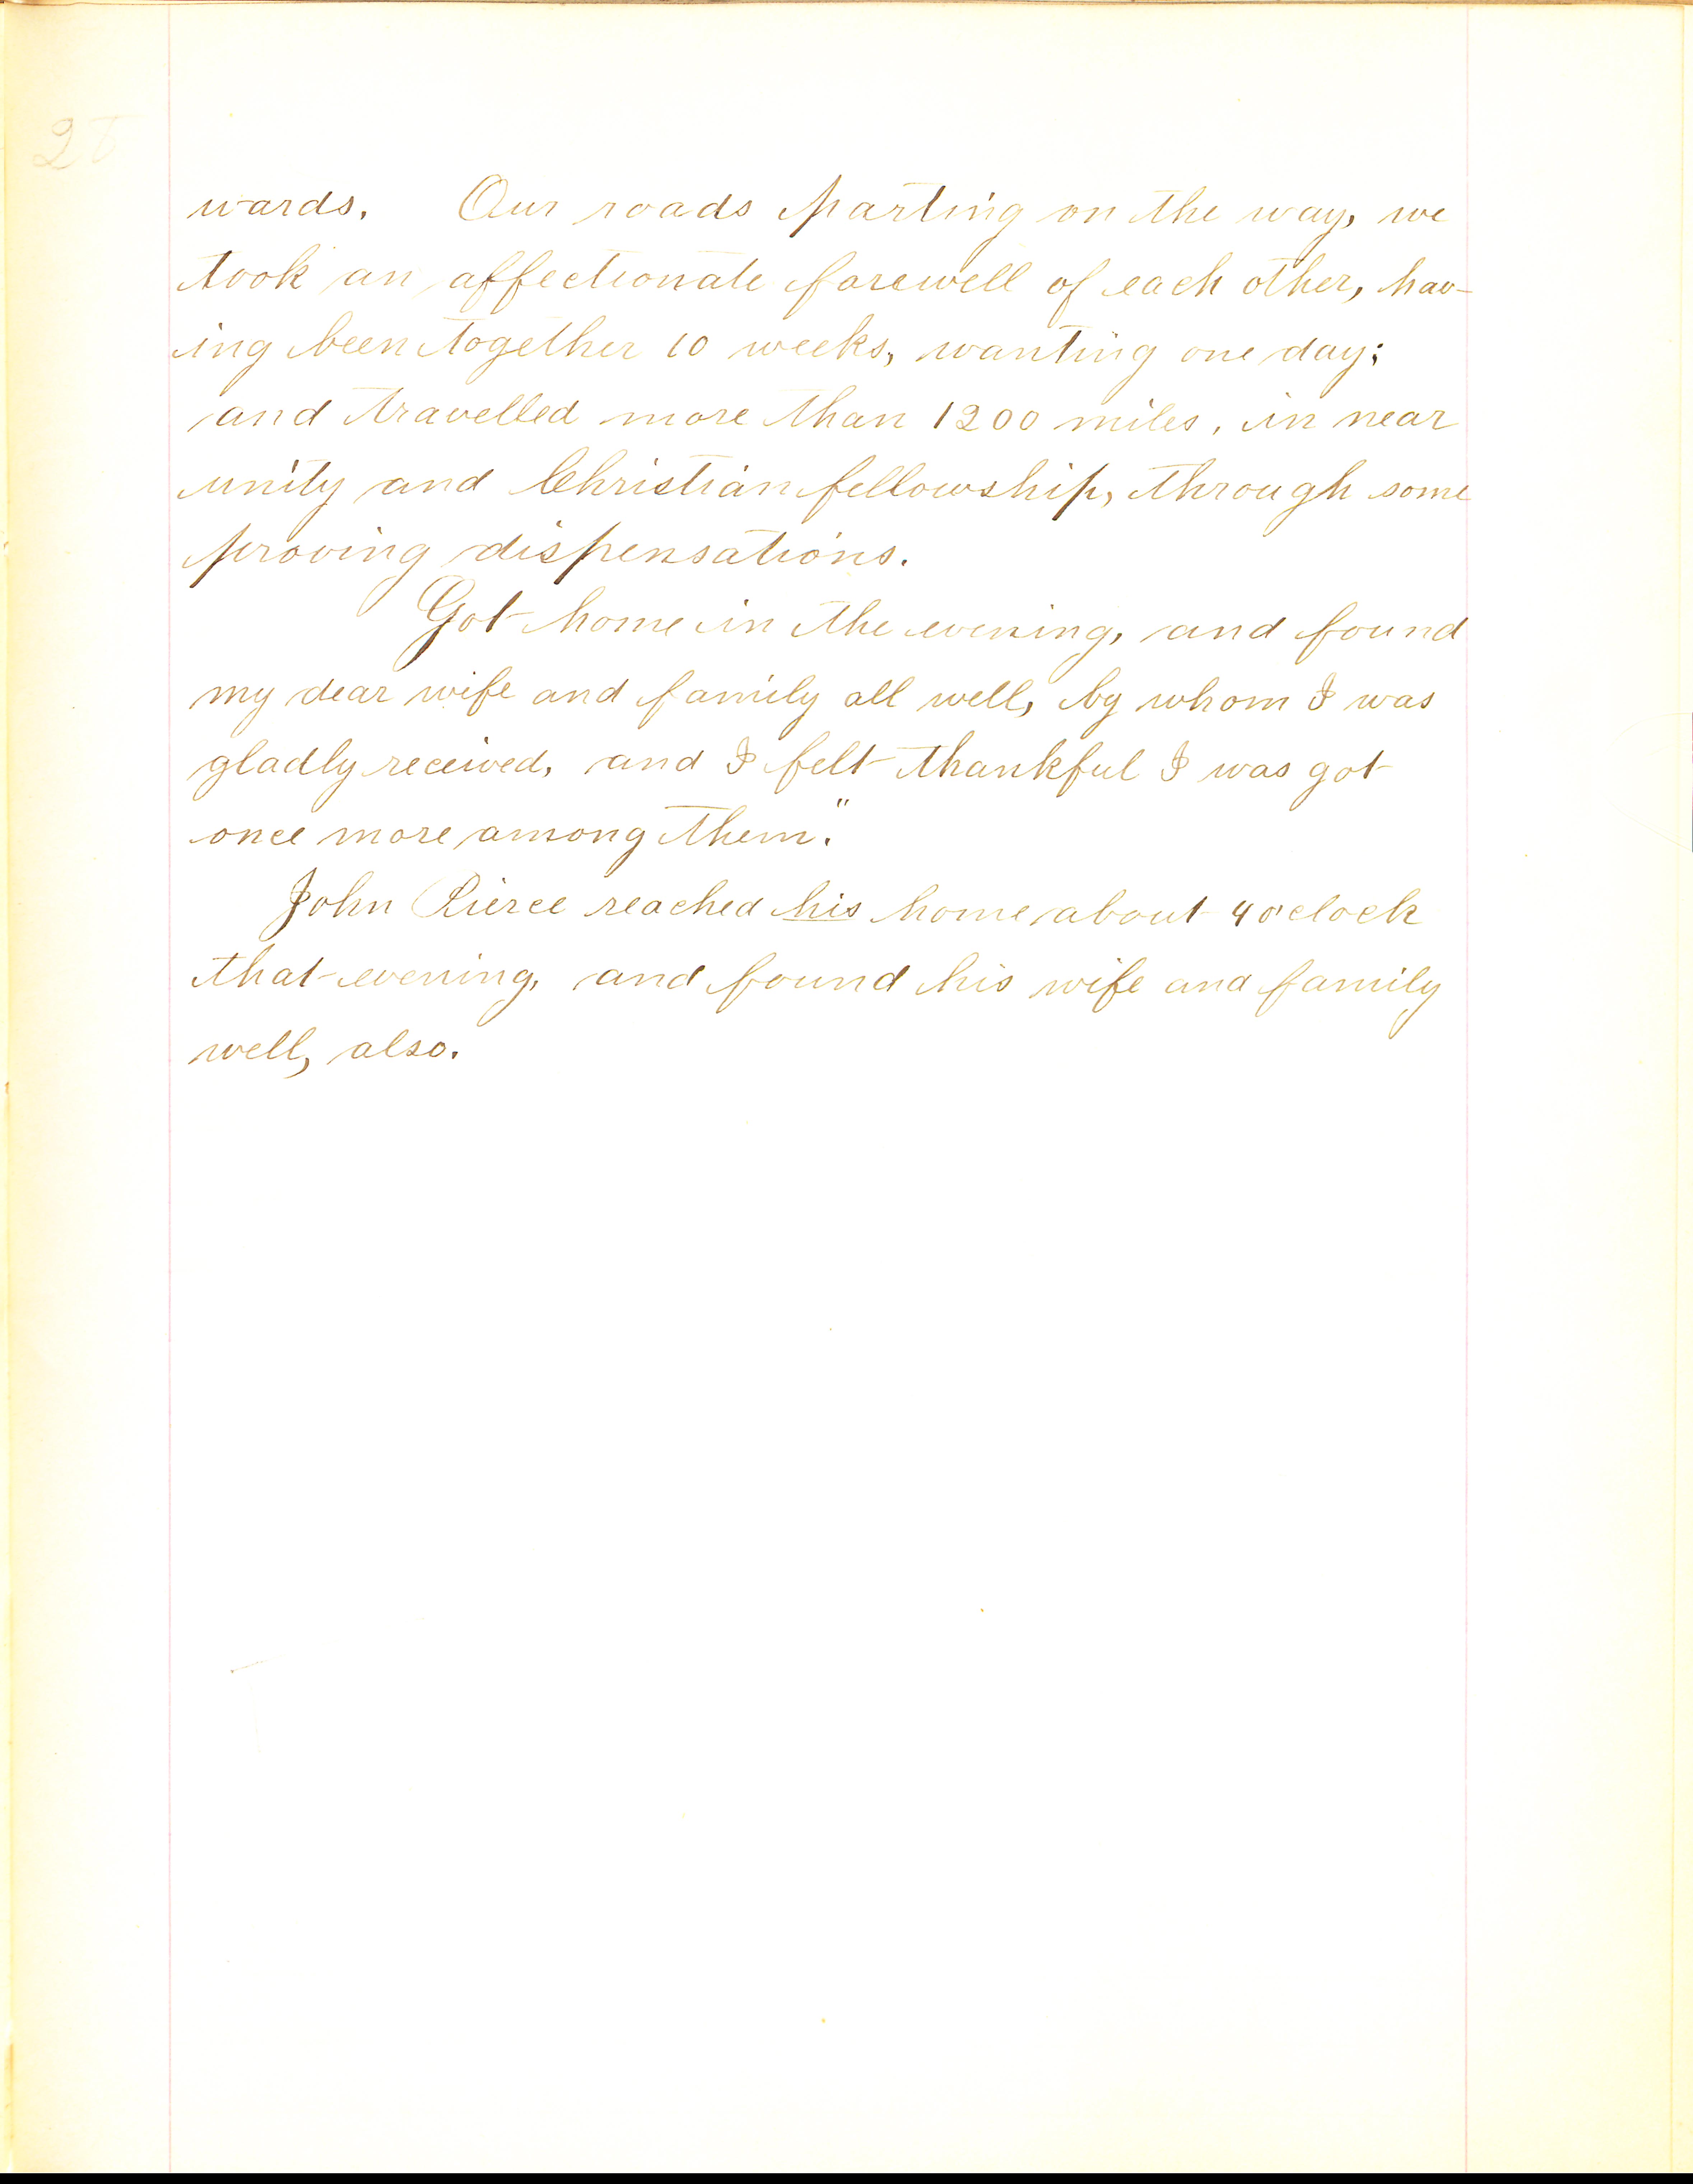 28
wards. Our roads parting on the way, we
took an affectionate farewell of each other, hav-
ing been together 10 weeks, wanting one day;
and travelled more than 1200 miles, in near
unity and Christian fellowship, through some
proving dispensations.
Got home in the evening, and found
my dear wife and family all well, by whom I was
gladly received, and I felt thankful I was got
once more among them."
John Pierce reached his home about 4 o'clock
that evening, and found his wife and family
well, also.